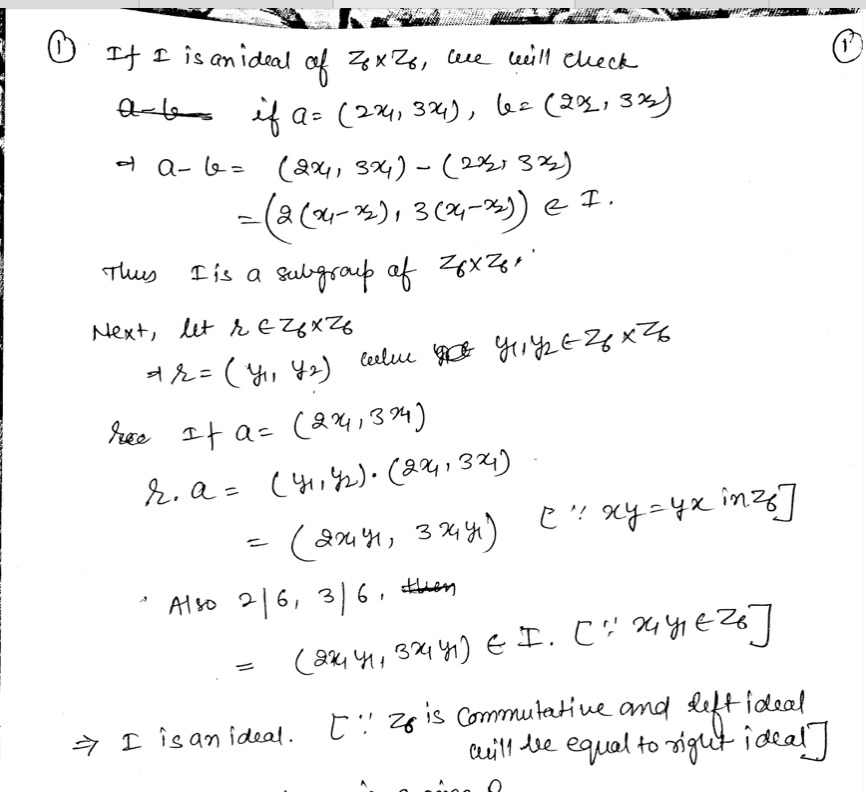 ① If I is an ideal of Z₆ × Z₆, we will check ①
if a = (2x₁, 3x₁), b = (2x₂, 3x₂)
⇒ a - b = (2x₁, 3x₁) - (2x₂, 3x₂)
= (2(x₁-x₂), 3(x₁-x₂)) ∈ I.
Thus I is a subgroup of Z₆×Z₆.
Next, let r ∈ Z₆×Z₆
⇒ r = (y₁, y₂) y₁, y₂ ∈ Z₆ × Z₆
If a = (2x₁, 3x₁)
r. a = (y₁, y₂). (2x₁, 3x₁)
= (2x₁y₁, 3x₁y₁) [∵ xy = yx in Z₆]
Also 2|6, 3|6,
= (2x₁y₁, 3x₁y₁) ∈ I. [∵ x₁y₁ ∈ Z₆]
⇒ I is an ideal. [∵ Z₆ is Commutative and left ideal
will be equal to right ideal]